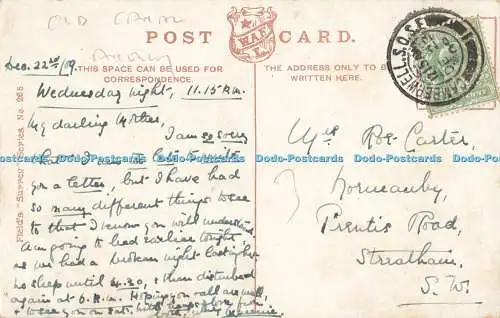 OLD CANAL
POST CARD.
W.A.F.
L.
Dec. 22nd/09.
THIS SPACE CAN BE USED FOR
CORRESPONDENCE.
THE ADDRESS ONLY TO BE
WRITTEN HERE.
CAMBERWELL.S.O.S.E
Wednesday night, 11.15 P.M.
My darling Mother,
I am so sorry
that I am too late to write
you a letter, but I have had
so many different things to see
to that I know you will understand
Am going to bed earlier tonight,
as we had a broken night last night
no sleep until 4.30, & then disturbed
again at 6 A.M. Hoping you all are well,
& to see you on Sat, with
Mrs R.C. Carter,
Normanby,
Prentis Road,
Streatham,
S.W.
Field's "Surrey" Series No. 265
Dodo-Postcards Dodo-Postcards Dodo-Postcards Dodo-Postcards
Dodo-Postcards Dodo-Postcards Dodo-Postcards Dodo-Postcards